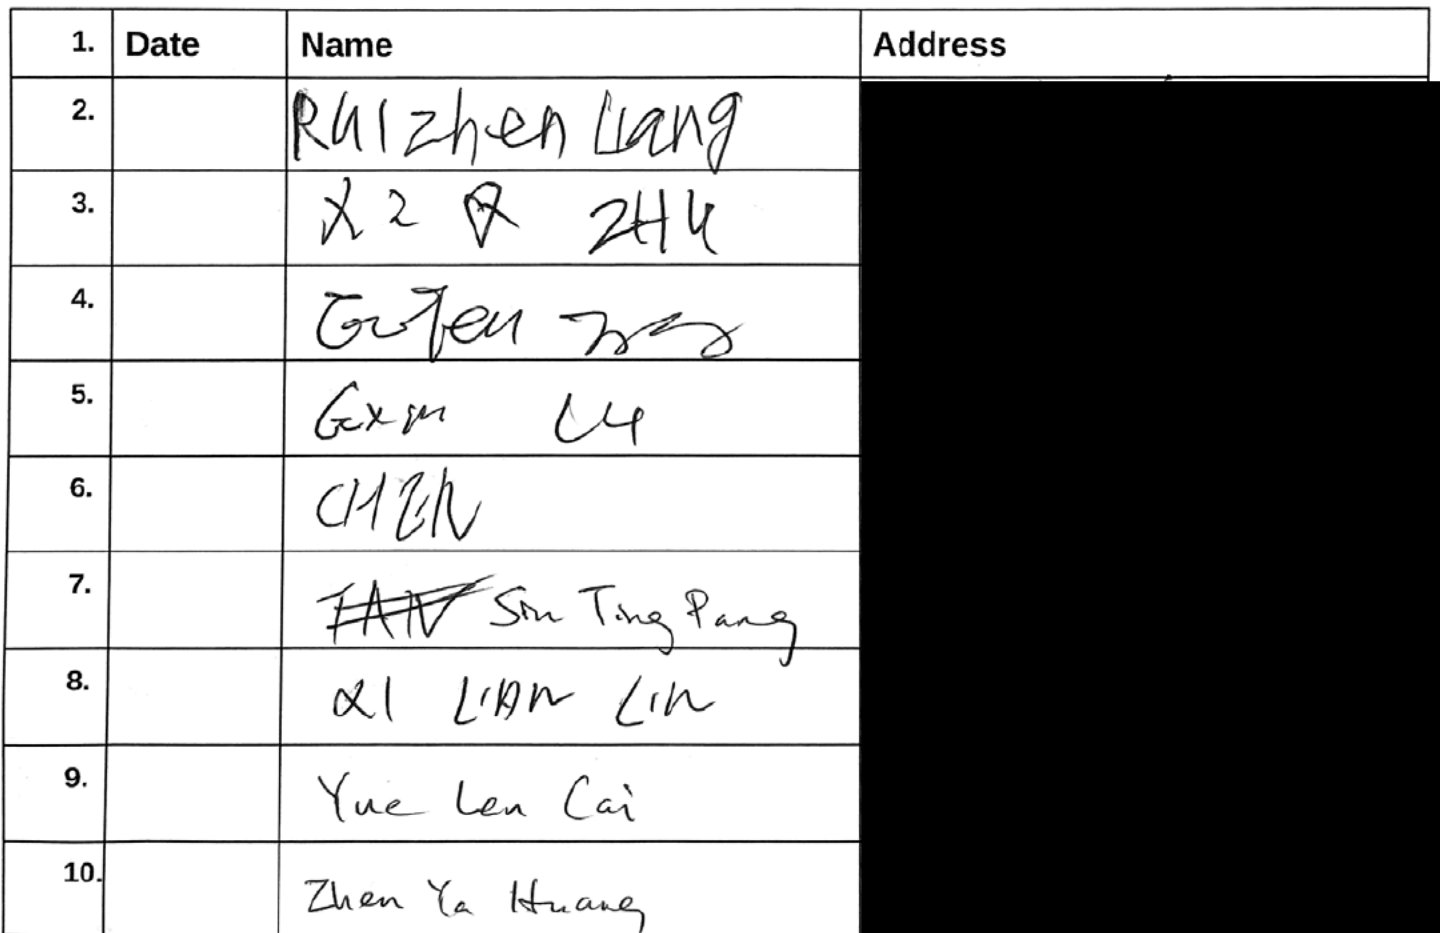 1. Date Name Address
2. Ruizhen Liang
3. ZHU
4.
5.
6. CHEN
7. TAN Sin Ting Pang
8. LIAN LIN
9. Yue Len Cai
10. Zhen Ya Huang